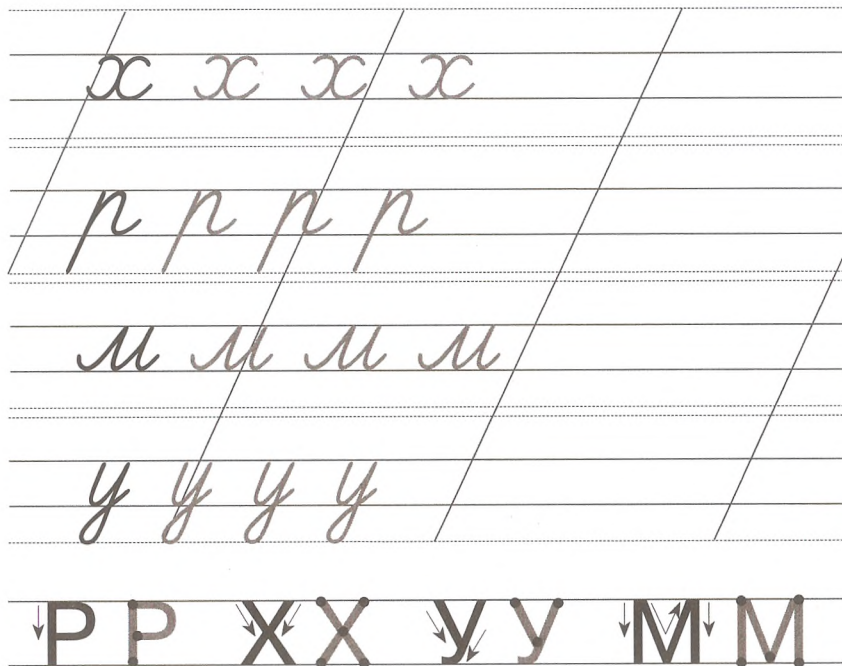 х х х х
р р р р
м м м м
у у у у
Р Р Х Х У У М М